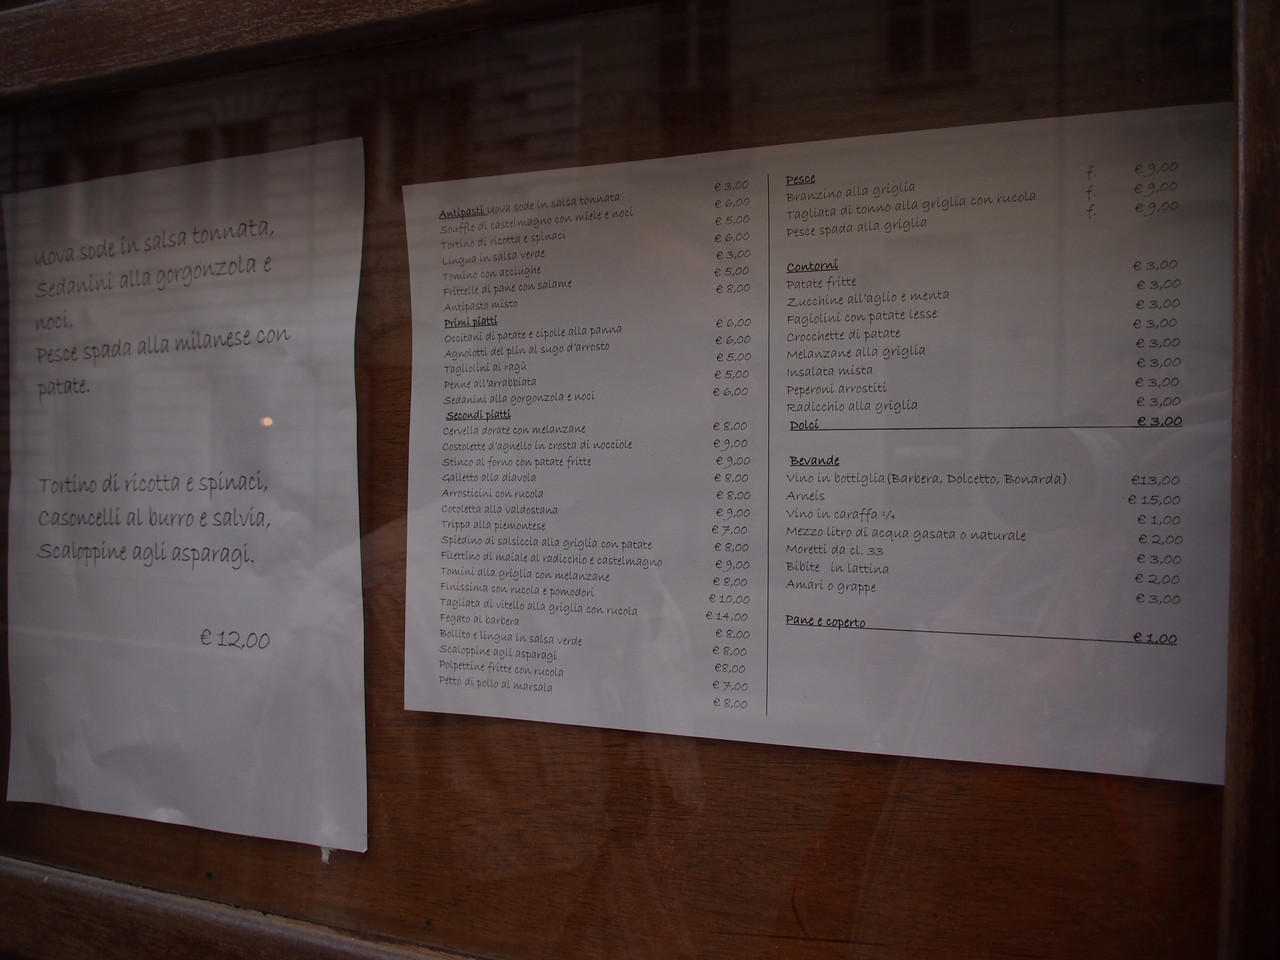 Uova sode in salsa tonnata,
Sedanini alla gorgonzola e
noci,
Pesce spada alla milanese con
patate.
Tortino di ricotta e spinaci,
Casoncelli al burro e salvia,
Scaloppine agli asparagi.
€ 12,00
Antipasti Uova sode in salsa tonnata € 3,00
Souffle di castelmagno con miele e noci € 6,00
Tortino di ricotta e spinaci € 5,00
Lingua in salsa verde € 6,00
Tomino con acciughe € 3,00
Frittelle di pane con salame € 5,00
Antipasto misto € 8,00
Primi piatti
Occitani di patate e cipolle alla panna € 6,00
Agnolotti del plin al sugo d'arrosto € 6,00
Tagliolini al ragù € 5,00
Penne all'arrabbiata € 5,00
Sedanini alla gorgonzola e noci € 6,00
Secondi piatti
Cervella dorate con melanzane € 8,00
Costolette d'agnello in crosta di nocciole € 9,00
Stinco al forno con patate fritte € 9,00
Galletto alla diavola € 8,00
Arrosticini con rucola € 8,00
Cotoletta alla valdostana € 9,00
Trippa alla piemontese € 7,00
Spiedino di salsiccia alla griglia con patate € 8,00
Filettino di maiale al radicchio e castelmagno € 9,00
Tomini alla griglia con melanzane € 8,00
Finissima con rucola e pomodori € 10,00
Tagliata di vitello alla griglia con rucola € 14,00
Fegato al barbera € 8,00
Bollito e lingua in salsa verde € 8,00
Scaloppine agli asparagi €8,00
Polpettine fritte con rucola € 7,00
Petto di pollo al marsala € 8,00
Pesce
Branzino alla griglia f. € 9,00
Tagliata di tonno alla griglia con rucola f. € 9,00
Pesce spada alla griglia f. € 9,00
Contorni
Patate fritte € 3,00
Zucchine all'aglio e menta € 3,00
Fagiolini con patate lesse € 3,00
Crocchette di patate € 3,00
Melanzane alla griglia € 3,00
Insalata mista € 3,00
Peperoni arrostiti € 3,00
Radicchio alla griglia € 3,00
Dolci € 3,00
Bevande
Vino in bottiglia (Barbera, Dolcetto, Bonarda) €13,00
Arneis € 15,00
Vino in caraffa ¼ € 1,00
Mezzo litro di acqua gasata o naturale € 2,00
Moretti da cl. 33 € 3,00
Bibite in lattina € 2,00
Amari o grappe € 3,00
Pane e coperto € 1,00